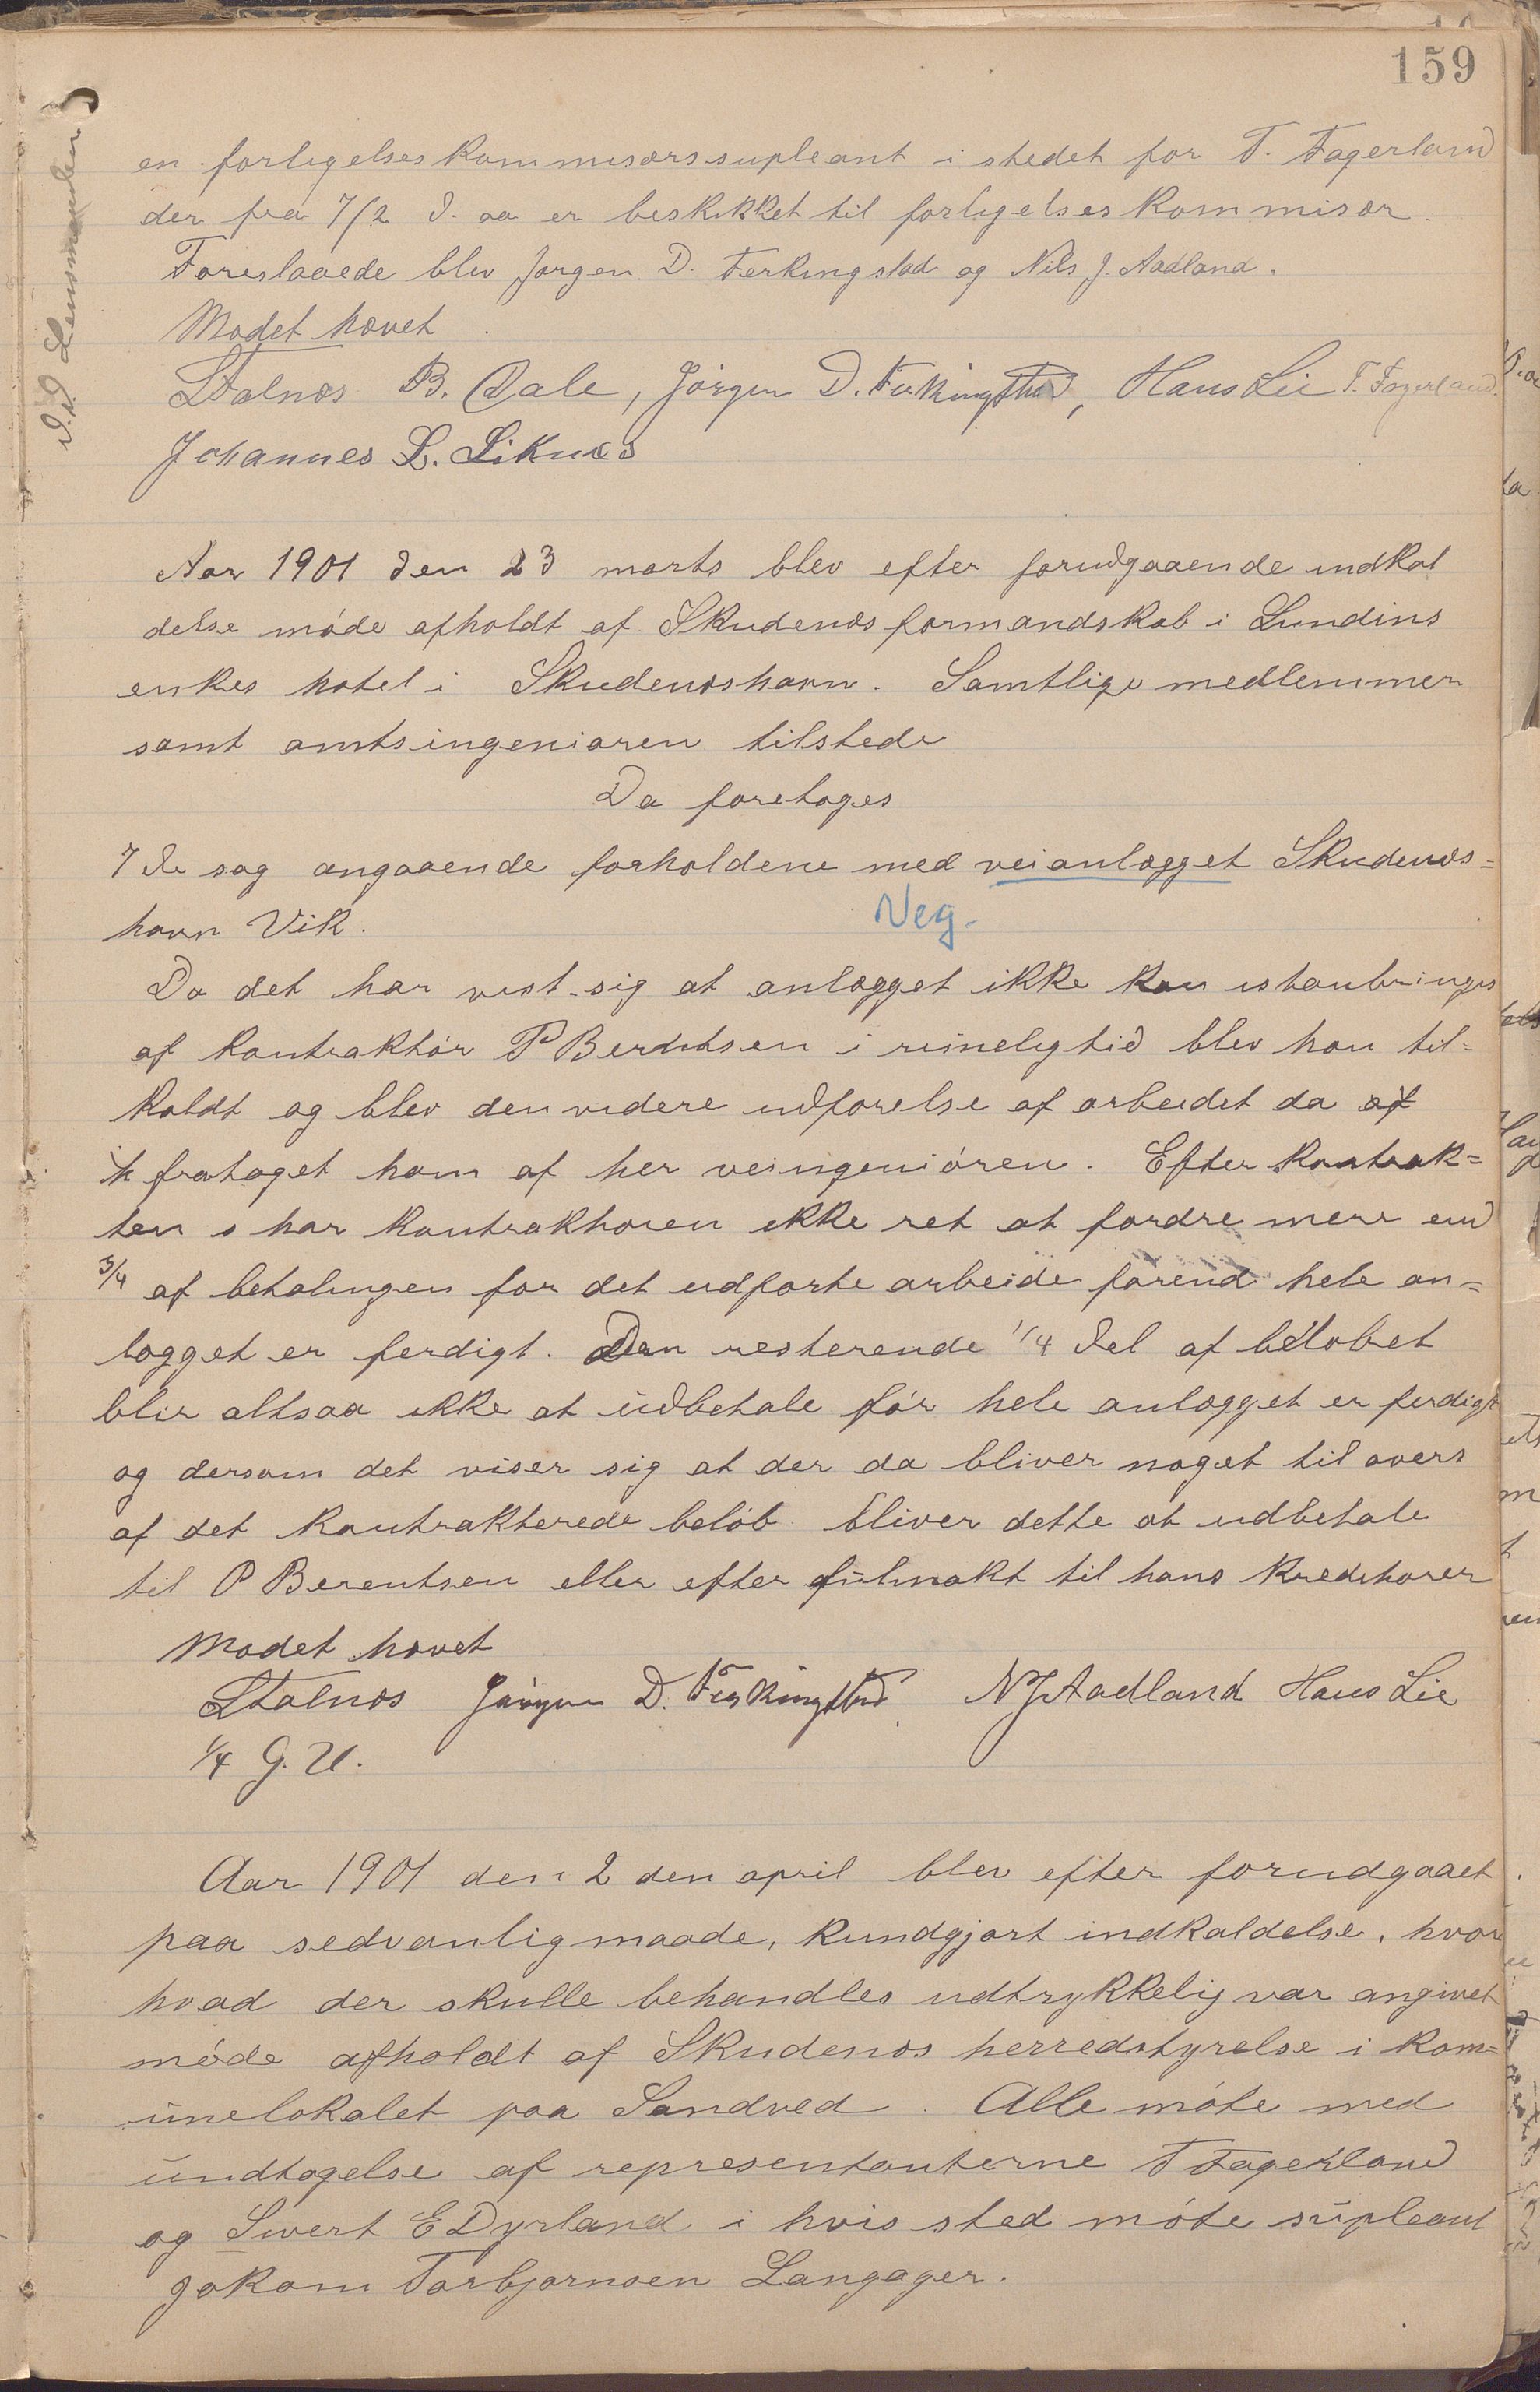 159
V. V Lensmanden
en forligelseskommisærssupleant i stedet for T. Fagerland
der fra 7/2 d. aa er beskikket til forligelseskommisær.
Foreslaaede blev Jørgen D. Ferkingstad og Nils J. Aadland.
Mødet hævet
Stalnæs B. Dale, Jørgen D. Ferkingstad, Hans Lie T. Fagerland.
Johannes L. Liknæs
Aar 1901 den 23 marts blev efter forudgaaende indkal
delse møde afholdt af Skudenæs formandskab i Lundins
enkes hotel i Skudenæshavn. Samtlige medlemmer
samt amtsingeniøren tilstede
Da foretoges
7de sag angaaende forholdene med veianlægget Skudenæs=
havn Vik.
Veg.
Da det har vist sig at anlægget ikke kan istanbringes
af kontraktør P Berntsen i rimelig tid blev han til=
kaldt og blev den videre udførelse af arbeidet da af
h frataget ham af her veingeniøren. Efter kontrak=
ten s har kontraktøren ikke ret at fordre mere end
3/4 af betalingen for det udførte arbeide førend hele an=
lægget er ferdigt. Den resterende 1/4 del af beløbet
blir altsaa ikke at udbetale før hele anlægget er ferdigt
og dersom det viser sig at der da bliver noget til overs
af det kontrakterede beløb bliver dette at udbetale
til P Berentsen eller efter fulmakt til hans kreditorer
Mødet hævet
Stalnæs Jørgen D. Ferkingstad. NJAadland Hans Lie
1/4 G. U.
Aar 1901 den 2den april blev efter forudgaaet
paa sedvanlig maade, kundgjort indkaldelse, hvori
hvad der skulle behandles udtrykkelig var angivet
møde afholdt af Skudenæs herredstyrelse i kom=
unelokalet paa Sandved. Alle møte med
undtagelse af representanterne T Fagerland
og Sivert E Dyrland i hvis sted møte supleant
Jokom Torbjørnsen Langager.